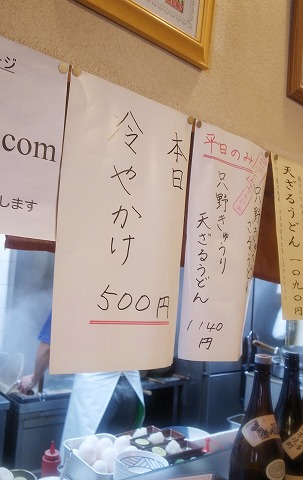 ージ
com
します
本日
冷やかけ
500円
平日のみ
只野きゅうり
天ざるうどん
1140円
天ざるうどん 一〇九〇円